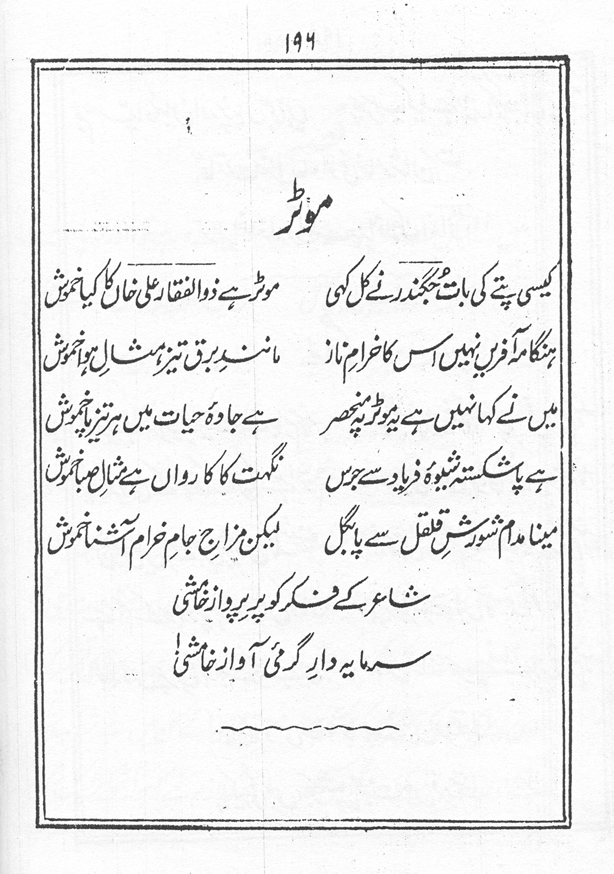 ۱۹۶
موٹر
کیسی پتے کی بات جُگندر نے کل کہی موٹر ہے ذوالفقار علی خاں کا کیا خموش
ہنگامہ آفریں نہیں اس کا خرامِ ناز مانندِ برق تیز، مثالِ ہوا خموش
میں نے کہا نہیں ہے یہ موٹر پہ منحصر ہے جادۂ حیات میں ہر تیز پا خموش
ہے پا شکستہ شیوۂ فریاد سے جرس نگہت کا کارواں ہے مثالِ صبا خموش
مینا مدام شورشِ قلقل سے پا بگل لیکن مزاجِ جامِ خرام آشنا خموش
شاعر کے فکر کو پرِ پرواز خامشی
سرمایہ دارِ گرمیٔ آواز خامشی!